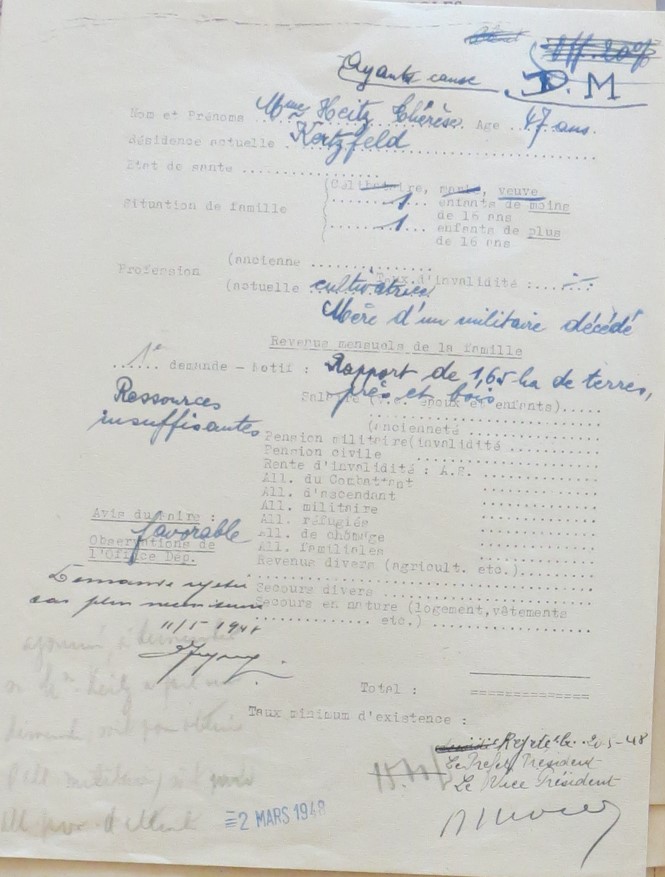 Ayants cause D.M
Nom et Prénoms Mme Heitz Thérèse Age 47 ans.
Résidence actuelle Kertzfeld
Etat de santé
(Célibataire, marié, veuve
Situation de famille
1 enfants de moins
de 16 ans
1 enfants de plus
de 16 ans
(ancienne
Profession Taux d'invalidité :
(actuelle cultivatrice
Mère d'un militaire décédé
Revenus mensuels de la famille
1e demande - Motif : Rapport de 1,65 ha de terres,
prés et bois
Ressources
insuffisantes
Salaire (v.c. époux et enfants)
(ancienneté
Pension militaire(invalidité
Pension civile
Rente d'invalidité : A.S.
All. du Combattant
All. d'ascendant
All. militaire
All. réfugiés
All. de chômage
All. familiales
Revenus divers (agricult. etc.)
Secours divers
Secours en nature (logement,vêtements
etc.)
Avis du Maire :
favorable
Observations de
l'Office Dép.
Demande rejetée
cas plus nécessiteux
11/5 1948
Total :
Taux minimum d'existence :
Rejeté le 20-5-48
Le Préfet Président
Le Vice Président
2 MARS 1948